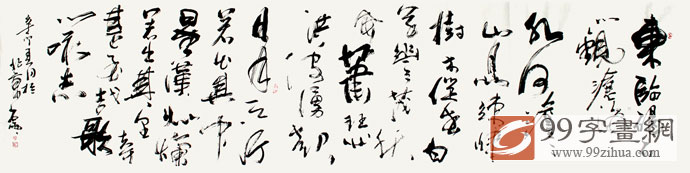 東臨碣
以觀滄海
水何澹
山島竦峙
樹木叢生百
草豐茂秋
風蕭瑟
洪波湧起
日月之行
若出其中
星漢燦爛
若出其里幸
甚至哉歌
以詠志
99字畫網
www.99zihua.com